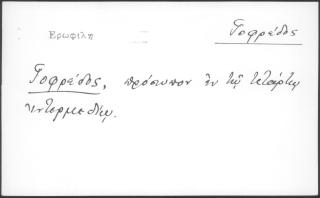 Ἐρωφίλη
Γοφρέδος
Γοφρέδος, πρόσωπον ἐν τῷ τετάρτῳ
ἰντερμεδίῳ.